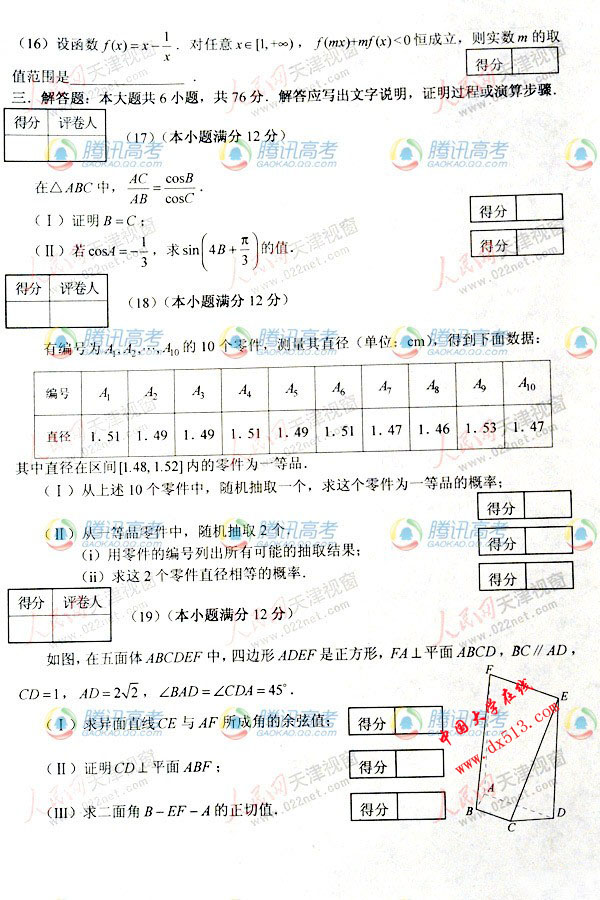 (16) 设函数 f(x)=x-1/x．对任意 x∈[1,+∞)，f(mx)+mf(x)<0 恒成立，则实数 m 的取
值范围是________．
得分
三．解答题：本大题共6小题，共76分．解答应写出文字说明，证明过程或演算步骤．
得分 评卷人
(17)（本小题满分12分）
在△ABC 中，AC/AB=cosB/cosC．
(Ⅰ) 证明 B=C；
得分
(Ⅱ) 若 cosA=-1/3，求 sin(4B+π/3) 的值．
得分
得分 评卷人
(18)（本小题满分12分）
有编号为 A₁,A₂,…,A₁₀ 的10个零件，测量其直径（单位：cm），得到下面数据：
编号 A₁ A₂ A₃ A₄ A₅ A₆ A₇ A₈ A₉ A₁₀
直径 1.51 1.49 1.49 1.51 1.49 1.51 1.47 1.46 1.53 1.47
其中直径在区间[1.48,1.52]内的零件为一等品．
(Ⅰ) 从上述10个零件中，随机抽取一个，求这个零件为一等品的概率；
得分
(Ⅱ) 从一等品零件中，随机抽取2个．
得分
(i) 用零件的编号列出所有可能的抽取结果；
(ii) 求这2个零件直径相等的概率．
得分
得分 评卷人
(19)（本小题满分12分）
如图，在五面体 ABCDEF 中，四边形 ADEF 是正方形，FA⊥平面 ABCD，BC // AD，
CD=1，AD=2√2，∠BAD=∠CDA=45°．
(Ⅰ) 求异面直线 CE 与 AF 所成角的余弦值；
得分
(Ⅱ) 证明 CD⊥平面 ABF；
得分
(Ⅲ) 求二面角 B-EF-A 的正切值．
得分
F
E
A
B
C
D
中国大学在线
www.dx513.com
腾讯高考
GAOKAO.QQ.COM
人民网天津视窗
www.022net.com